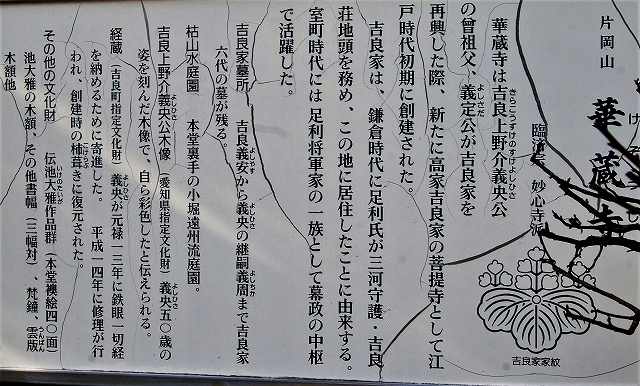 片岡山
華蔵寺
臨済宗 妙心寺派
吉良家家紋
華蔵寺は吉良上野介義央公
の曾祖父、義定公が吉良家を
再興した際、新たに高家吉良家の菩提寺として江
戸時代初期に創建された。
吉良家は、鎌倉時代に足利氏が三河守護・吉良
荘地頭を務め、この地に居住したことに由来する。
室町時代には足利将軍家の一族として幕政の中枢
で活躍した。
吉良家墓所 吉良義安から義央の継嗣義周まで吉良家
六代の墓が残る。
枯山水庭園 本堂裏手の小堀遠州流庭園。
吉良上野介義央公木像(愛知県指定文化財)義央五〇歳の
姿を刻んだ木像で、自ら彩色したと伝えられる。
経蔵(吉良町指定文化財)義央が元禄一三年に鉄眼一切経
を納めるために寄進した。 平成一四年に修理が行
われ、創建時の柿葺きに復元された。
その他の文化財 伝池大雅作品群(本堂襖絵四〇面)
池大雅の木額、その他書幅(三幅対)、梵鐘、雲版
木額他